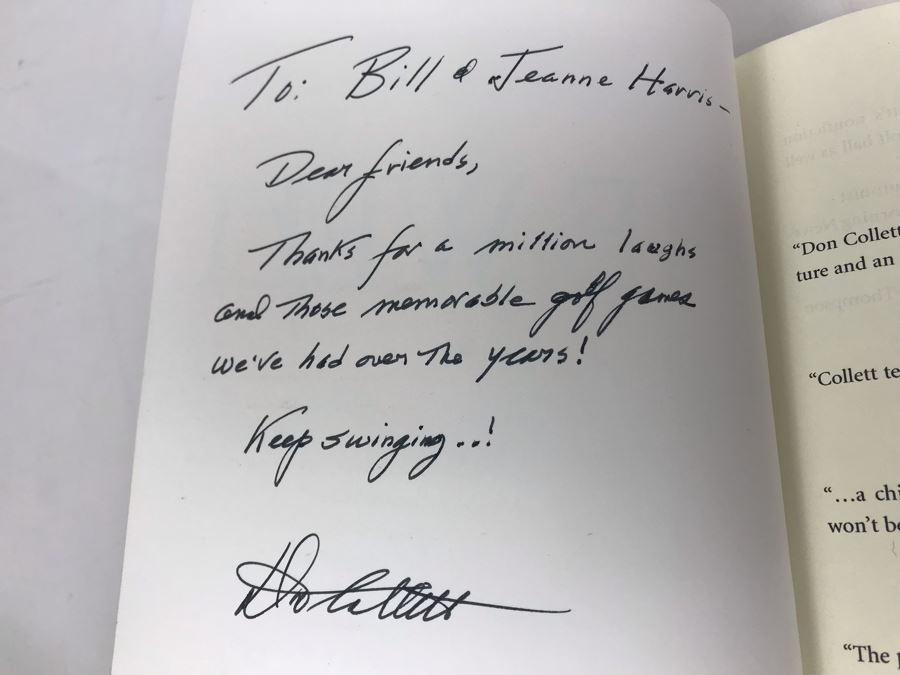 To: Bill & Jeanne Harris–
Dear friends,
Thanks for a million laughs
and those memorable golf games
we've had over the years!
Keep swinging..!
Don Collett
“Don Collett
ture and an
“Collett te
“...a chi
won't be
“The p